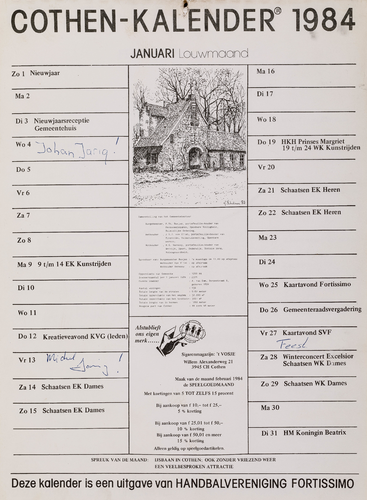 COTHEN-KALENDER® 1984
JANUARI Louwmaand
Zo 1 Nieuwjaar
Ma 2
Di 3 Nieuwjaarsreceptie
Gemeentehuis
Wo 4 Johan Jarig!
Do 5
Vr 6
Za 7
Zo 8
Ma 9 9 t/m 14 EK Kunstrijden
Di 10
Wo 11
Do 12 Kreatieveavond KVG (leden)
Vr 13 Jarig!
Za 14 Schaatsen EK Dames
Zo 15 Schaatsen EK Dames
Alstublieft
ons eigen
merk......
Sigarenmagazijn: 't VOSJE
Willem Alexanderweg 21
3945 CH Cothen
Maak van de maand februari 1984
de SPEELGOEDMAAND
Met kortingen van 5 TOT ZELFS 15 procent
Bij aankoop van f 10,- tot f 25,-
5 % korting
Bij aankoop van f 25,01 tot f 50,-
10 % korting
Bij aankoop van f 50,01 en meer
15 % korting
Alleen geldig op speelgoedartikelen
Ma 16
Di 17
Wo 18
Do 19 HKH Prinses Margriet
19 t/m 24 WK Kunstrijden
Vr 20
Za 21 Schaatsen EK Heren
Zo 22 Schaatsen EK Heren
Ma 23
Di 24
Wo 25 Kaartavond Fortissimo
Do 26 Gemeenteraadsvergadering
Vr 27 Kaartavond SVF
Feest
Za 28 Winterconcert Excelsior
Schaatsen WK Dames
Zo 29 Schaatsen WK Dames
Ma 30
Di 31 HM Koningin Beatrix
SPREUK VAN DE MAAND: IJSBAAN IN COTHEN. OOK ZONDER VRIEZEND WEER
EEN VEELBESPROKEN ATTRACTIE
Deze kalender is een uitgave van HANDBALVERENIGING FORTISSIMO